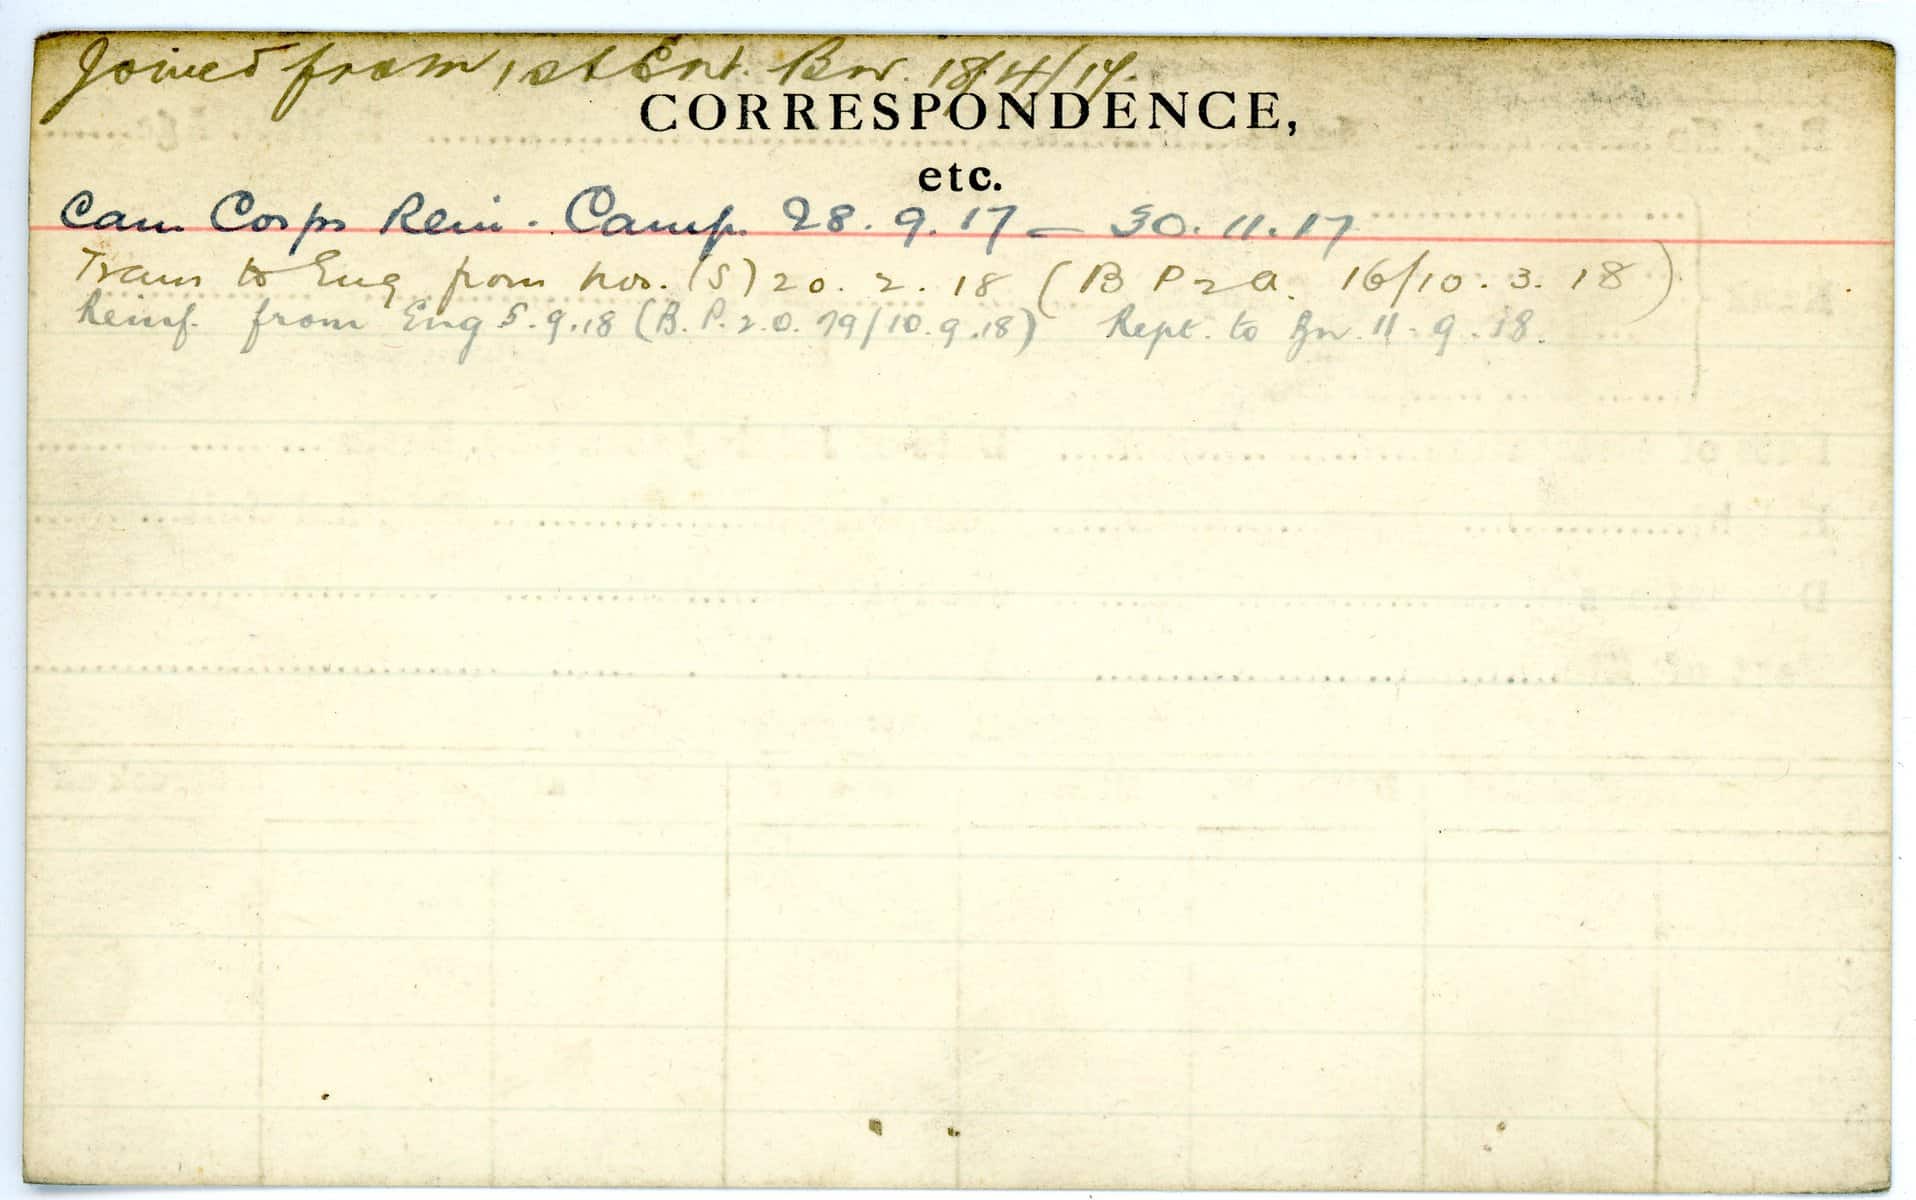 Joined from 1st Ent. Bn. 18/4/17.
CORRESPONDENCE,
etc.
Can Corps Rein. Camp. 28.9.17 - 30.11.17
Trans to Eng from hos. (S) 20.2.18 (B P 2 a. 16/10.3.18)
Reinf. from Eng 5.9.18 (B.P.2.O. 79/10.9.18) Rept. to Bn. 11.9.18.